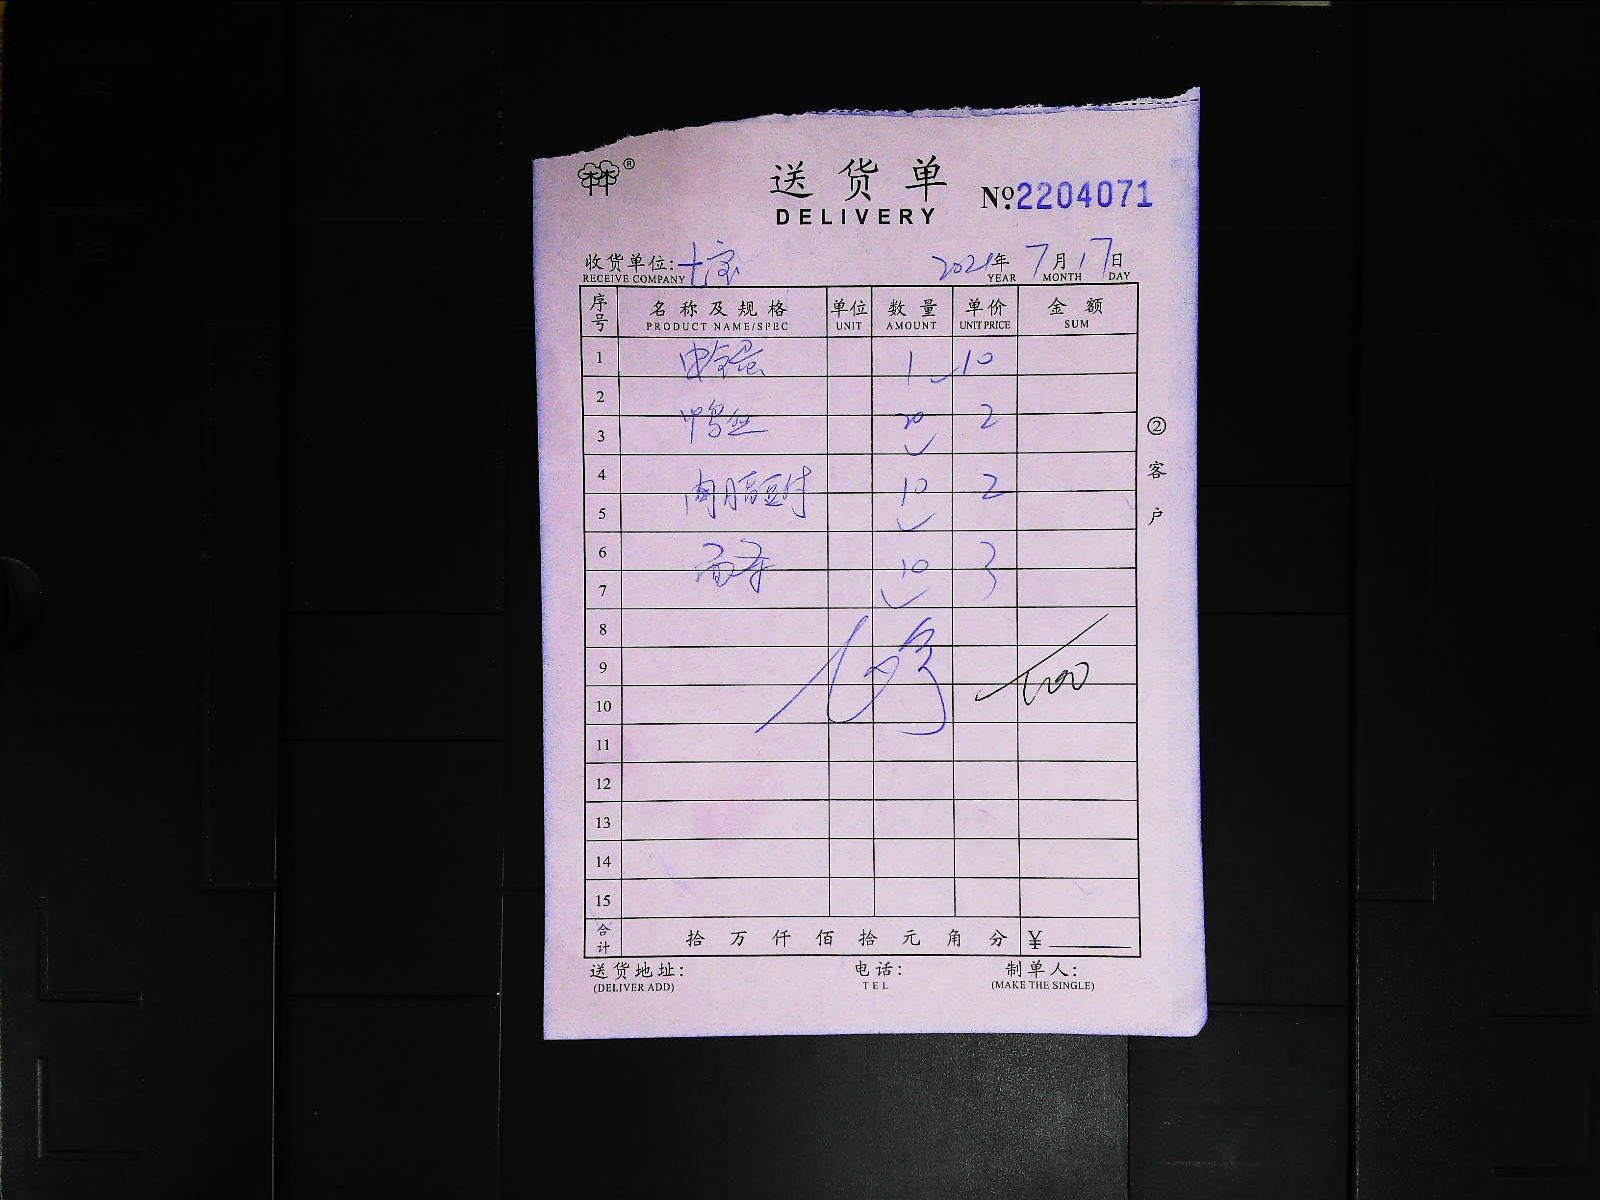 林®
送货单
DELIVERY
№2204071
收货单位: 七宝 2021年 7月 17日
RECEIVE COMPANY YEAR MONTH DAY
序号 名称及规格 单位 数量 单价 金额
PRODUCT NAME/SPEC UNIT AMOUNT UNIT PRICE SUM
1 1 10
2
3 鸭血 20 2
4 内脂豆付 10 2
5
6 10 3
7
8
9
10
11
12
13
14
15
合计 拾 万 仟 佰 拾 元 角 分 ¥
②客户
送货地址: 电话: 制单人:
(DELIVER ADD) TEL (MAKE THE SINGLE)